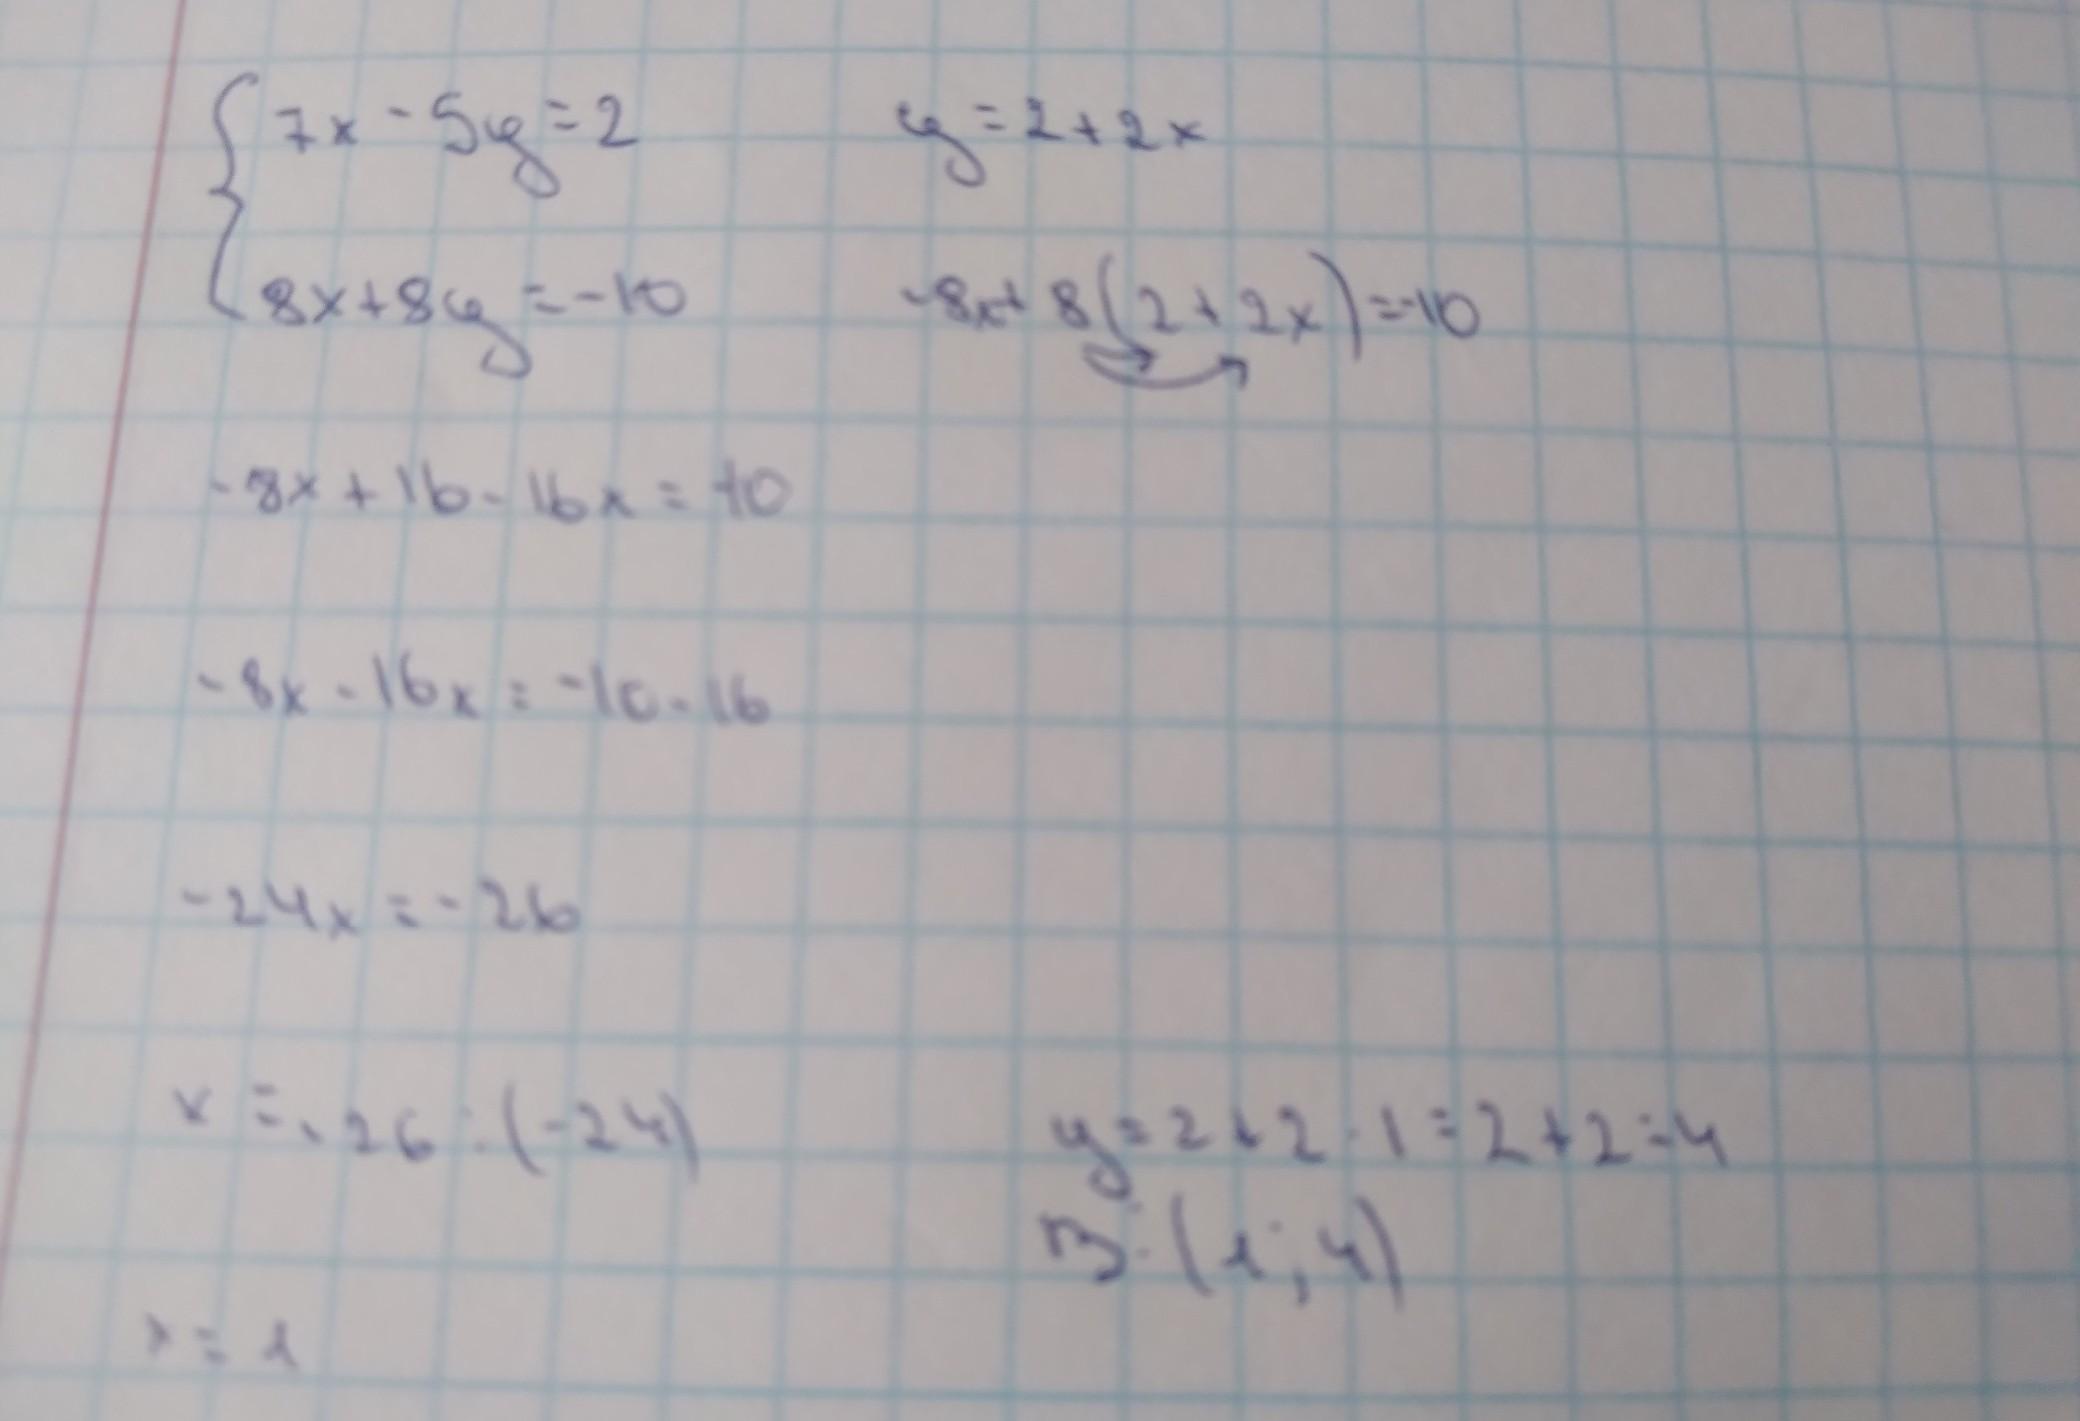 7x - 5y = 2 y = 2 + 2x
8x + 8y = -10 -8x + 8(2 + 2x) = -10
-8x + 16 - 16x = -10
-8x - 16x = -10 - 16
-24x = -26
x = -26 : (-24) y = 2 + 2 · 1 = 2 + 2 = 4
В: (1; 4)
x = 1